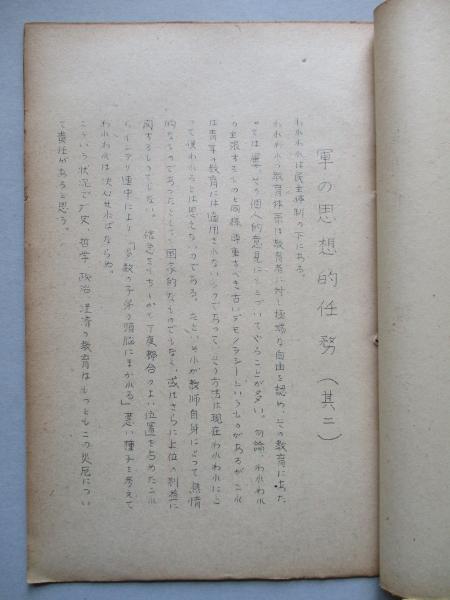 軍の思想的任務(其二)
われわれは民主体制の下にある。
われわれの教育体系は教育者に対し極端な自由を認め、その教育にあた
っては屡々その個人的意見にもとづいてやることが多い。勿論、われわれ
の主張するものと同様尊重すべき古いデモクラシーというものがあるが、これ
は青年の教育には適用されないものであって、そう方法は現在われわれにと
って使われるとは思えないのである。たといそれが教師自身にとって熱情
的なものであったとしても、国家的なものでもなく、或はさらに上位の利益に
関するものでもない。
らインテリ連中により「多数の子弟の頭脳にまかれる」悪い種子を考えて
われわれは決心せねばならぬ。
こういう状況で、歴史、哲学、政治、経済の教育はもっともこの災厄につい
て責任があると思う。